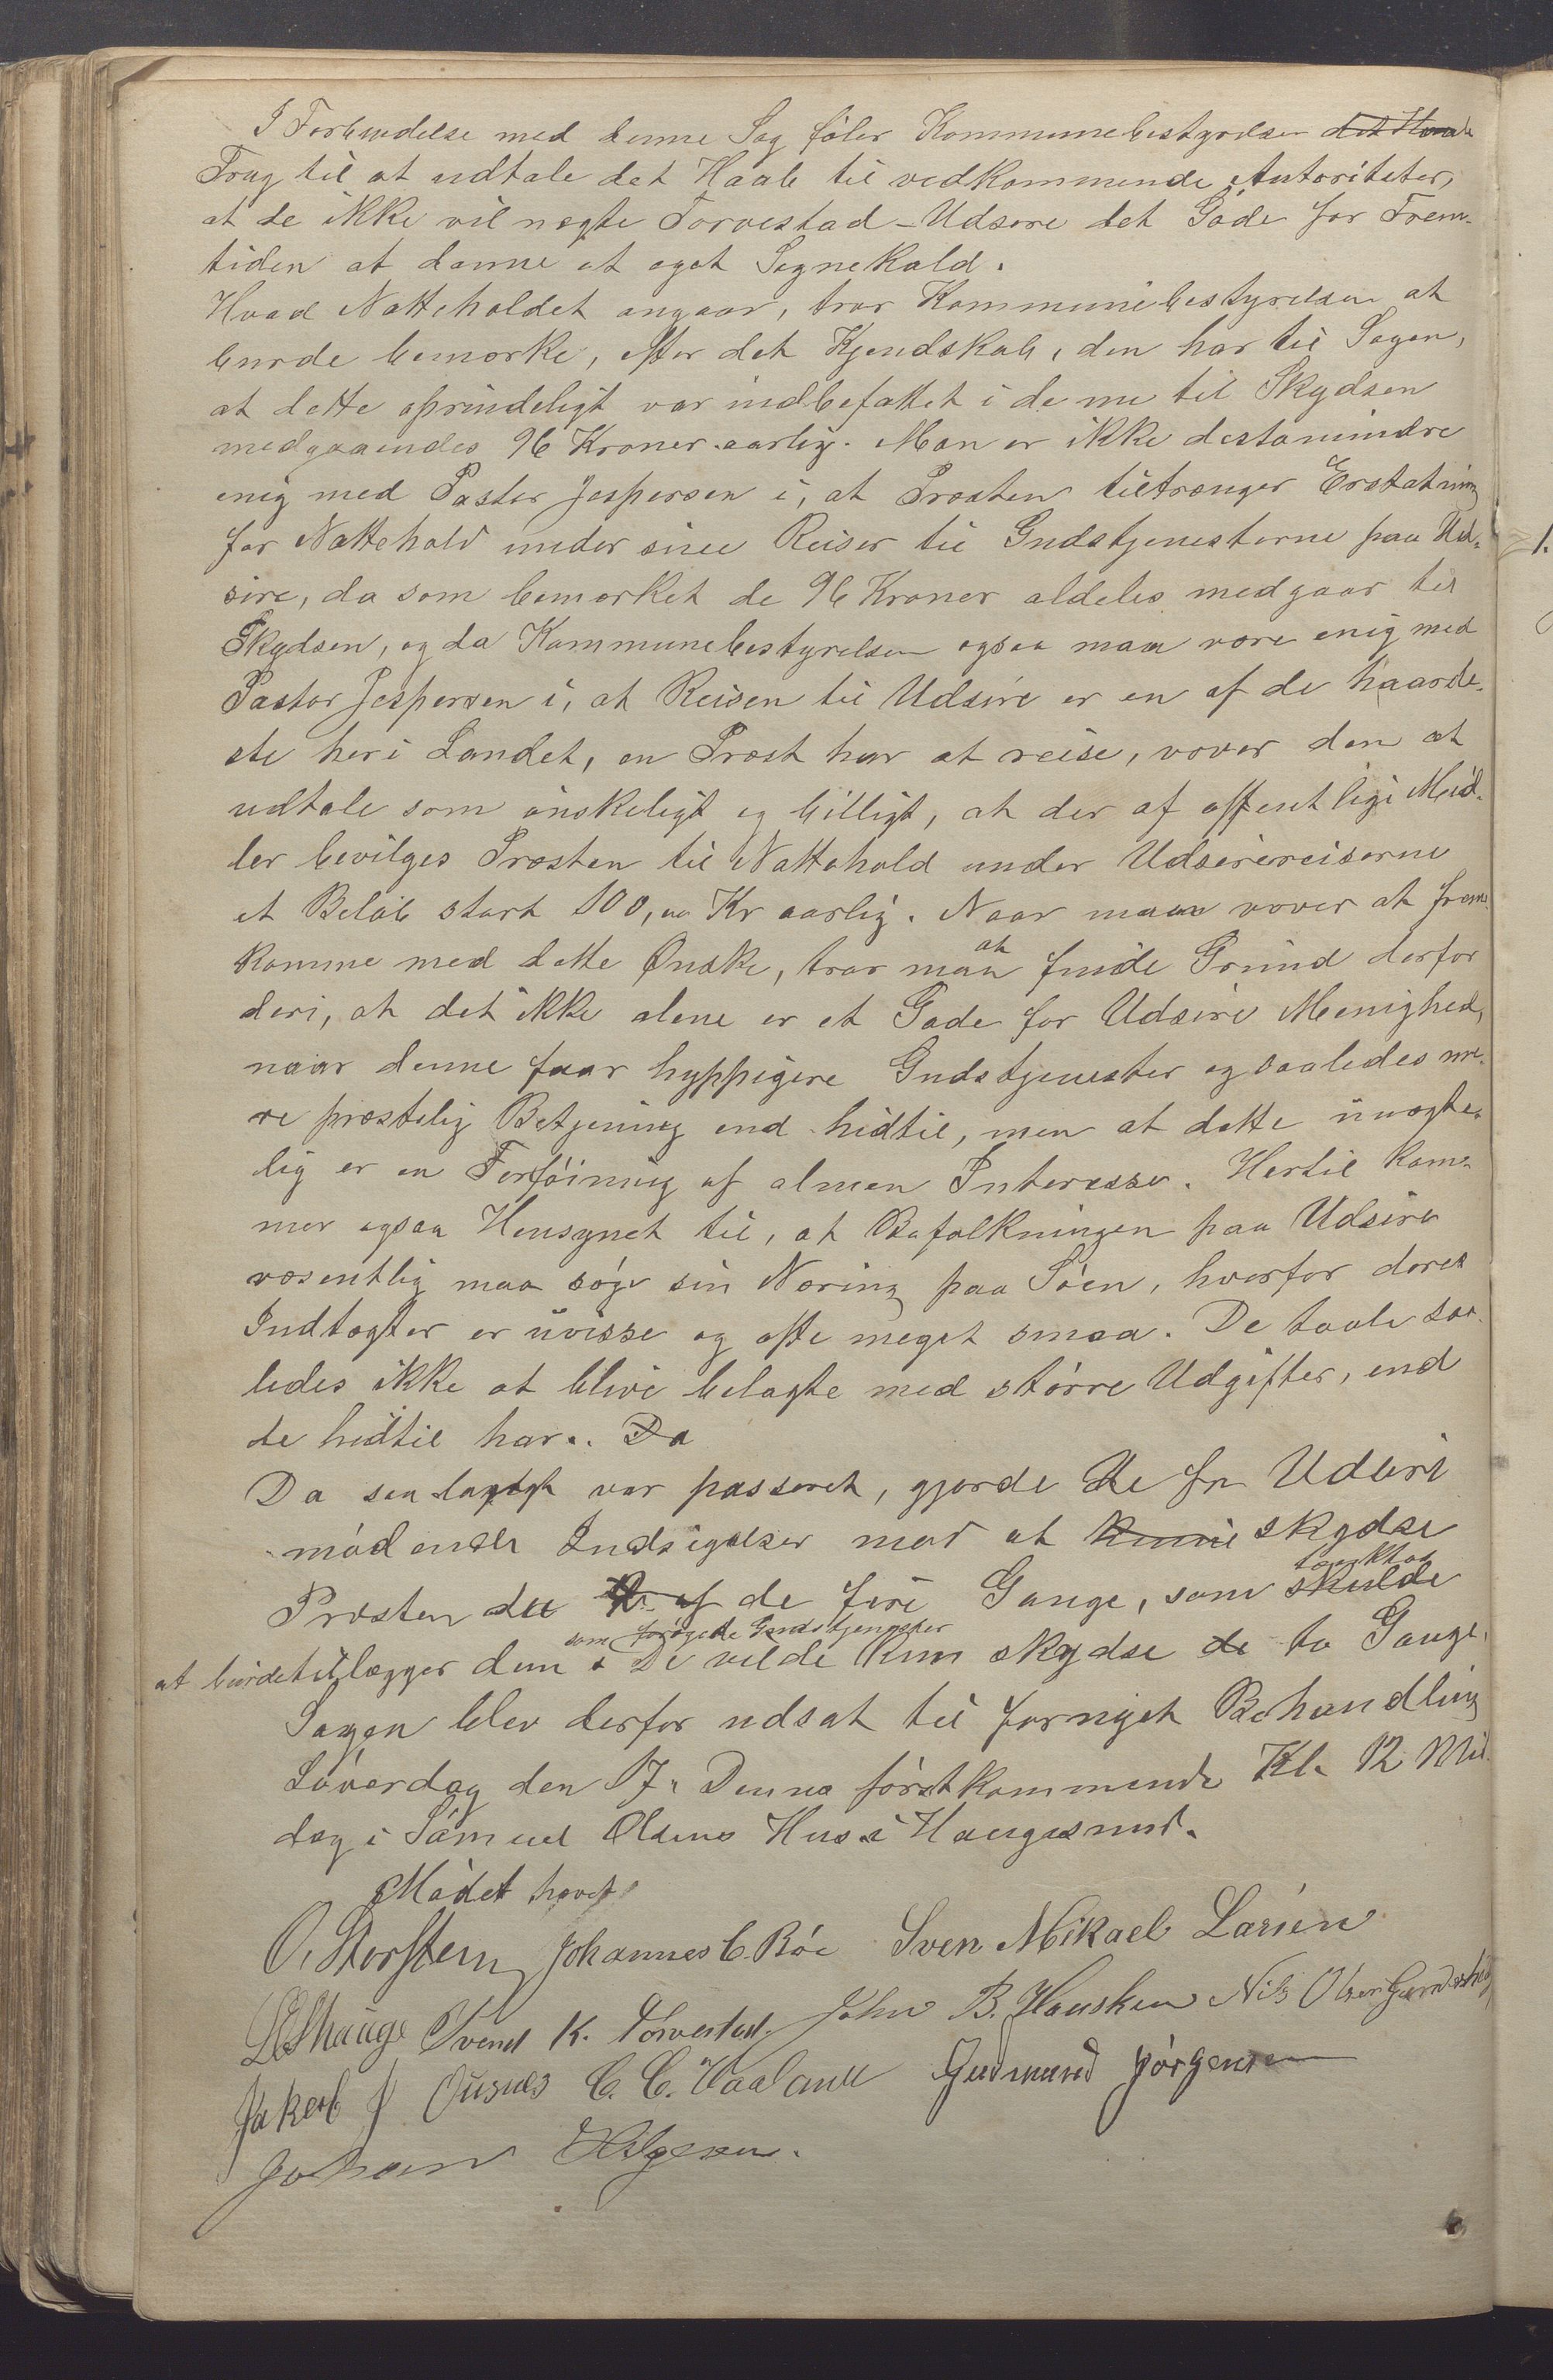 I Forbindelse med denne Sag föler Kommunebestyrelsen det Haab
Trang til at udtale det Haab til vedkommende Autoriteter,
at de ikke vil negte Torvestad-Udsire det Gode for Frem-
tiden at danne et eget Sognekald.
Hvad Natteholdet angaar, tror Kommunebestyrelsen at
burde bemærke, efter det Kjendskab, den har til Sagen,
at dette oprindeligt var indbefattet i de nu til Skydsen
medgaaendes 96 Kroner aarlig. Man er ikke destomindre
enig med Pastor Jespersen i, at Præsten tiltrænger Erstatning
for Nattehold under sine Reiser til Gudstjenesterne paa Ud-
sire, da som bemærket de 96 Kroner aldeles medgaar til
Skydsen, og da Kommunebestyrelsen ogsaa maa være enig med
Pastor Jespersen i, at Reisen til Udsire er en af de haarde-
ste her i Landet, en Præst har at reise, vover den at
udtale som önskeligt og billigt, at der af offentlige Mid-
ler bevilges Præsten til Nattehold under Udsirereiserne
et Belöb stort 100,00 Kr aarlig. Naar man vover at frem-
komme med dette Ønske, tror man at finde Grund derfor
deri, at det ikke alene er et Gode for Udsire Menighed,
naar denne faar hyppigere Gudstjenester og saaledes me-
re præstelig Betjening end hidtil, men at dette unægte-
lig er en Forföining af almen Interesse. Hertil kom-
mer ogsaa Hensynet til, at Befolkningen paa Udsire
væsentlig maa söge sin Næring paa Söen, hvorfor deres
Indtægter er uvisse og ofte meget smaa. De taale saa-
ledes ikke at blive belagte med större Udgifter, end
de hidtil har. Da
Da saa langt var passeret, gjorde de fra Udsire
mödende Indsigelser mod at kunne skydse
Præsten de af de fire Gange, som skulde tænktes
at burde tillægges dem som forögede Gudstjenester De vilde kun skydse de to Gange.
Sagen blev derfor udsat til fornyet Behandling
Löverdag den 17. Dennes förstkommende Kl. 12 Mid-
dag i Samuel Olsens Hus i Haugesund.
Mödet hævet
O. Storstein Johannes C. Röe Sven Mikael Larsen
Svend K. Torvestad. John B. Hausken Nils Olsen
Jakob J Ousnes C. C. Vaaland Gudmund Jörgensen
Johan Helgesen.